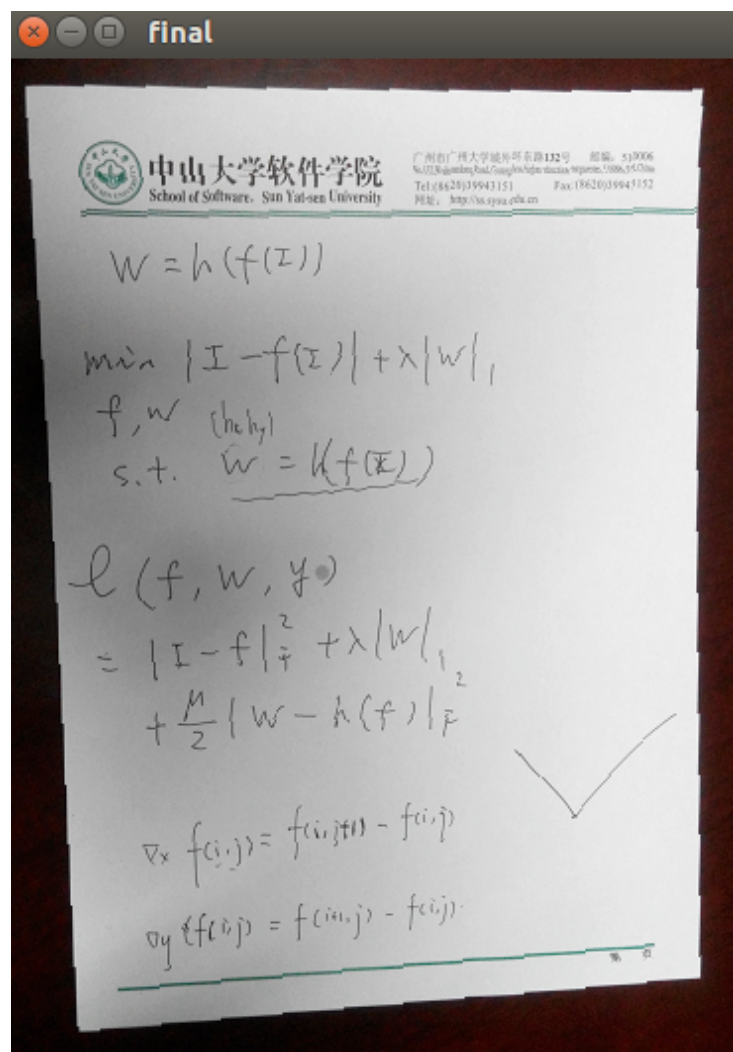 final
中山大学软件学院
School of Software, Sun Yat-sen University
广州市广州大学城外环东路132号 邮编：510006
Tel:(8620)39943151 Fax:(8620)39943152
网址： http://ss.sysu.edu.cn
W = h(f(I))
min |I - f(I)| + λ|W|₁
f, W (hx hy)
s.t. W = h(f(I))
ℓ(f, W, y)
= |I - f|²_F + λ|W|₁
+ μ/2 |W - h(f)|²_F
∇x f(i,j) = f(i,j+1) - f(i,j)
∇y f(i,j) = f(i+1,j) - f(i,j)
第 页